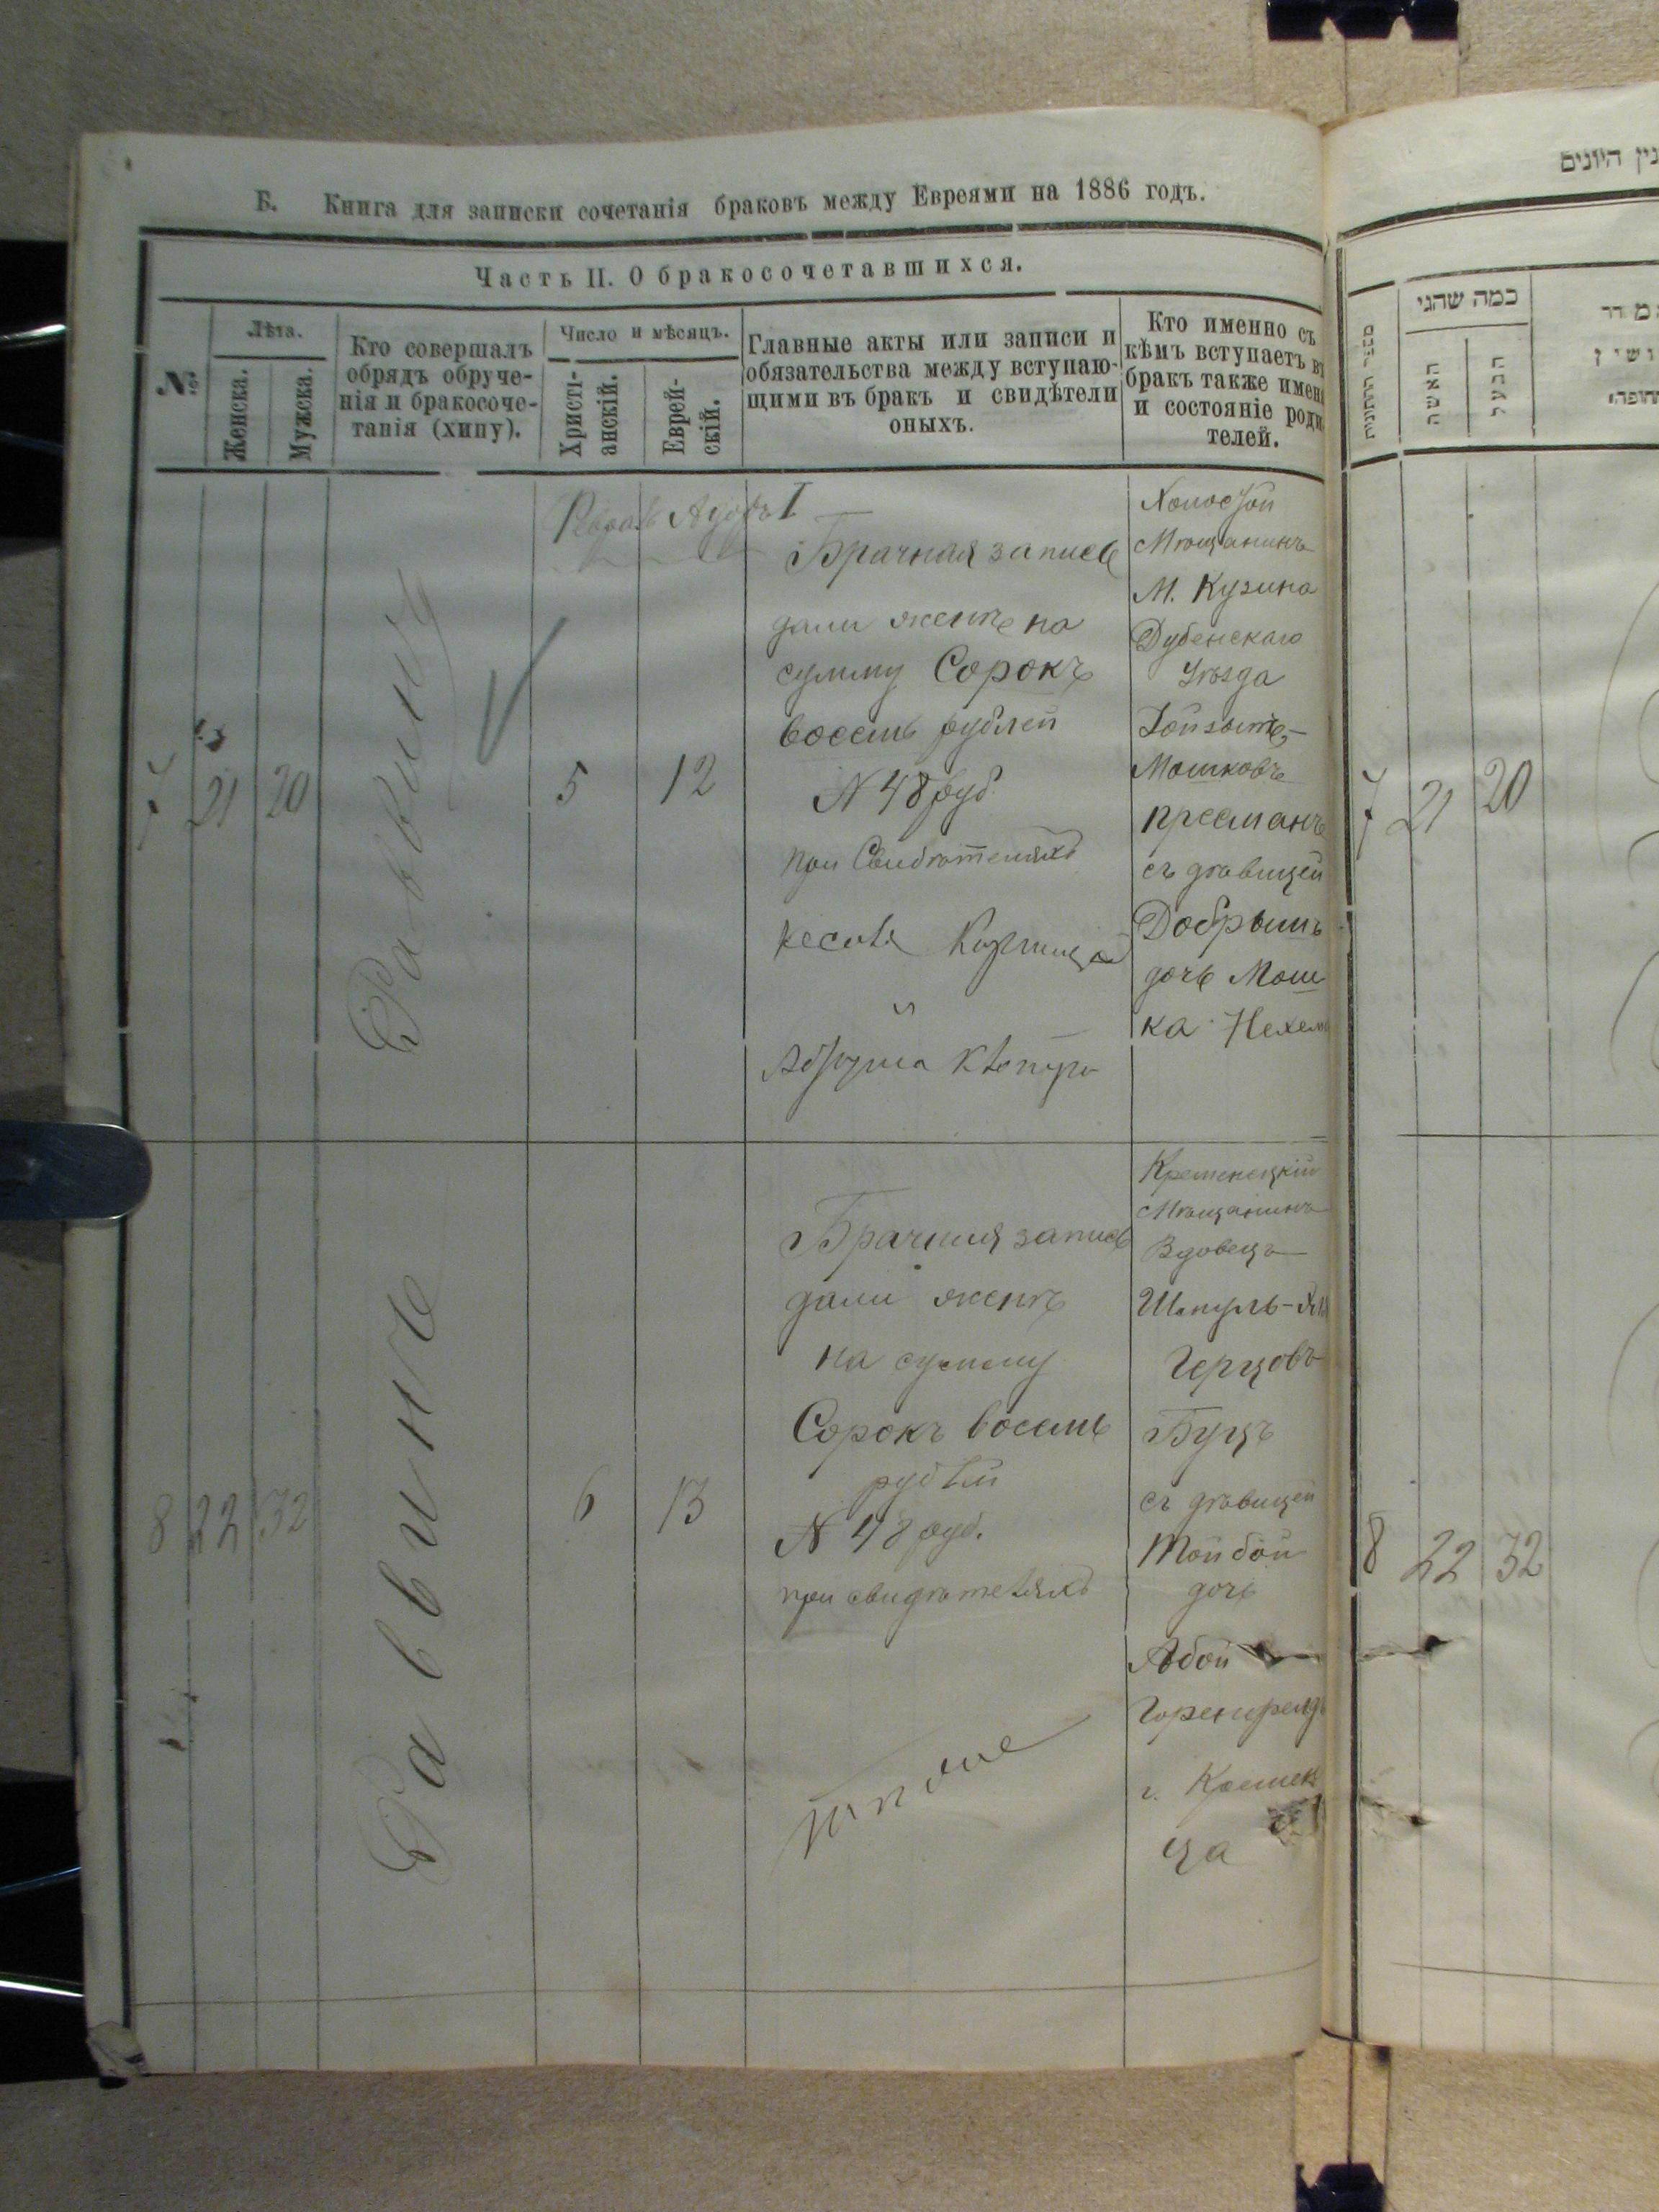 Б. Книга для записки сочетанія браковъ между Евреями на 1886 годъ.
Часть II. О бракосочетавшихся.
№
Лѣта.
Женска.
Мужска.
Кто совершалъ
обрядъ обруче-
нія и бракосоче-
танія (хипу).
Число и мѣсяцъ.
Христі-
анскій.
Еврей-
скій.
Главные акты или записи и
обязательства между вступаю-
щими въ бракъ и свидѣтели
оныхъ.
Кто именно съ
кѣмъ вступаетъ въ
бракъ также имен
и состояніе роди
телей.
7
21
20
Раввинъ
5
12
I
Брачная запись
дали женѣ на
сумму Сорокъ
восемь рублей
N 48 руб.
при Свидѣтеляхъ
и
Холостой
Мѣщанинъ
М. Кузина
Дубенскаго
Уѣзда
Мошковъ
съ дѣвицей
Добрышъ
дочь Мош
ка Нехем
8
22
32
Раввинъ
6
13
Брачная запись
дали женѣ
на сумму
Сорокъ восемь
рублей
N 48 руб.
при свидѣтеляхъ
тѣже
Кременецкій
Мѣщанинъ
Вдовецъ
Герцовъ
Буцъ
съ дѣвицей
Тойбой
дочь
г. Кремен
ца
כמה שהגי
האשה
הבעל
7
21
20
8
22
32